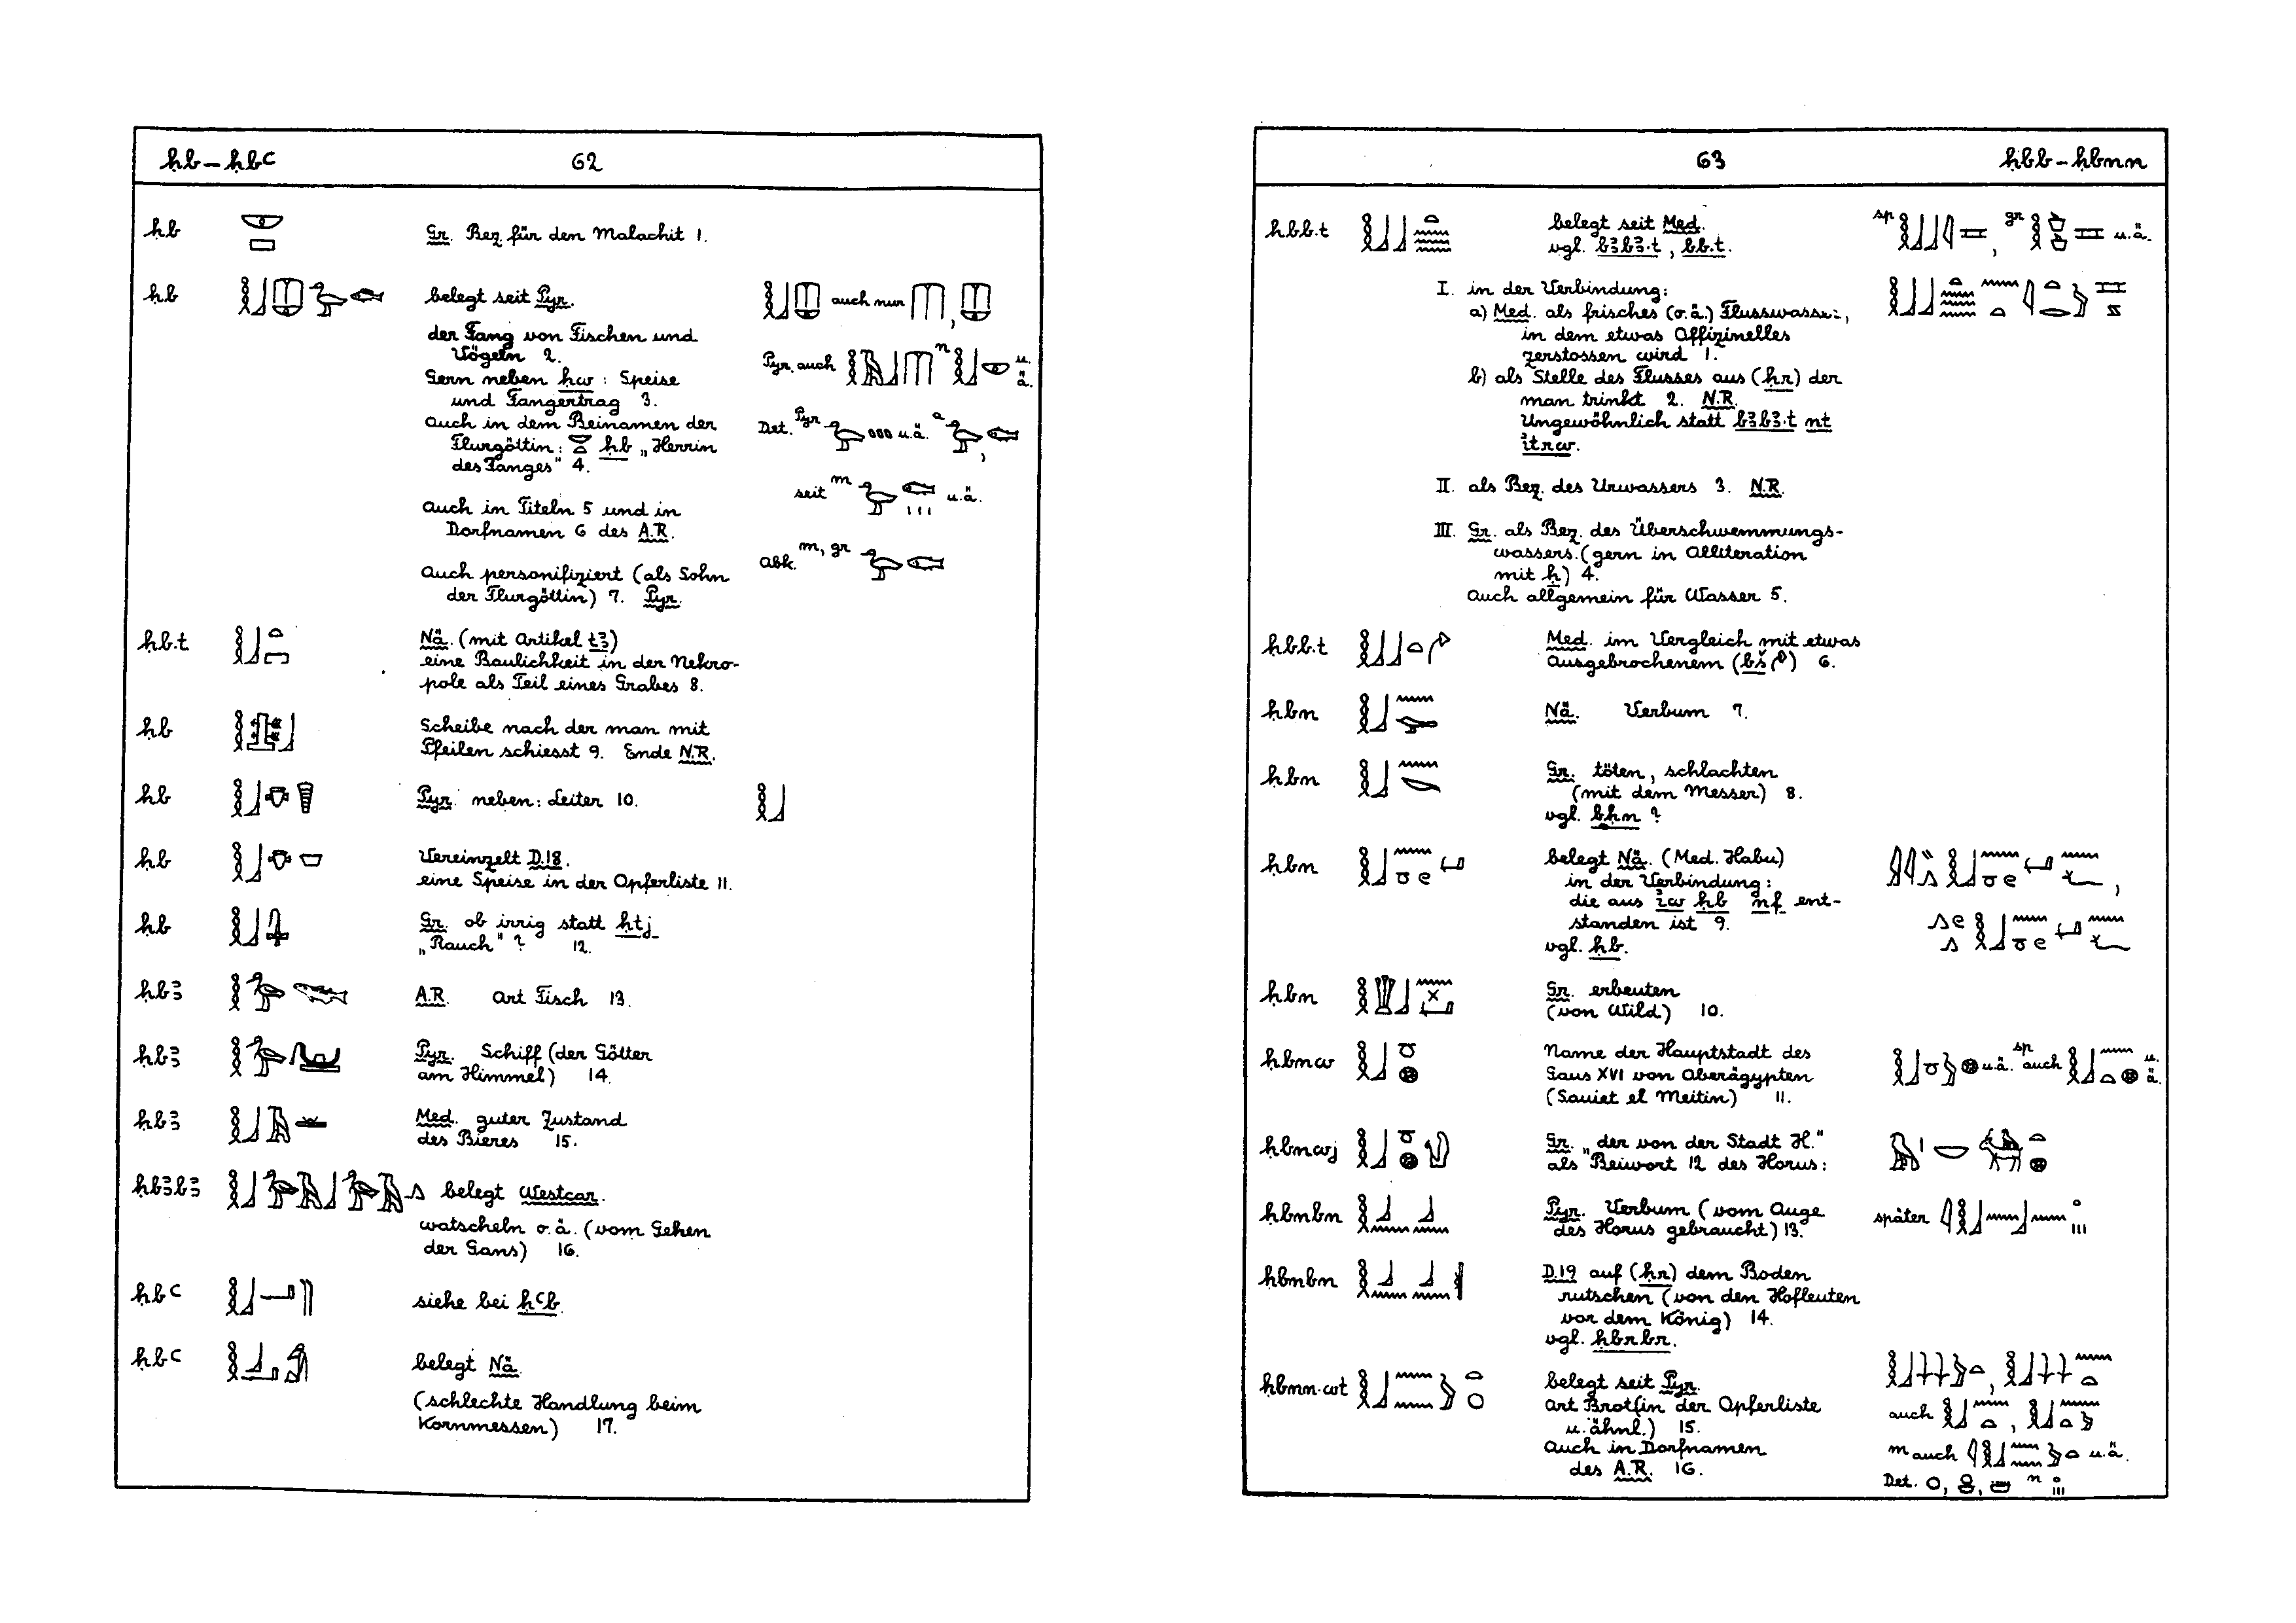 ḥb – ḥbꜥ 62
ḥb Gr. Bez. für den Malachit 1.
ḥb belegt seit Pyr. auch nur ,
der Fang von Fischen und
Vögeln 2.
Pyr. auch n u.ä.
Gern neben ḥw : Speise
und Fangertrag 3.
Auch in dem Beinamen der
Flurgöttin: ḥb „Herrin
des Fanges" 4.
Det. Pyr u.ä. a ,
seit m u.ä.
Auch in Titeln 5 und in
Dorfnamen 6 des A.R.
Abk. m, gr
Auch personifiziert (als Sohn
der Flurgöttin) 7. Pyr.
ḥb.t Nä. (mit Artikel tꜣ)
eine Baulichkeit in der Nekro-
pole als Teil eines Grabes 8.
ḥb Scheibe nach der man mit
Pfeilen schiesst 9. Ende N.R.
ḥb Pyr. neben: Leiter 10.
ḥb Vereinzelt D.18.
eine Speise in der Opferliste 11.
ḥb Gr. ob irrig statt ḥtj
„Rauch" ? 12.
ḥbꜣ A.R. Art Fisch 13.
ḥbꜣ Pyr. Schiff (der Götter
am Himmel) 14.
ḥbꜣ Med. guter Zustand
des Bieres 15.
ḥbꜣbꜣ belegt Westcar.
watscheln o.ä. (vom Gehen
der Gans) 16.
ḥbꜥ siehe bei ḥꜥb.
ḥbꜥ belegt Nä.
(schlechte Handlung beim
Kornmessen) 17.
63 ḥbb – ḥbnn
ḥbb.t belegt seit Med. sp , gr u.ä.
vgl. bꜣbꜣ.t , bb.t.
I. in der Verbindung:
a) Med. als frisches (o.ä.) Flusswasser,
in dem etwas Offizinelles
zerstossen wird 1.
b) als Stelle des Flusses aus (ḥr) der
man trinkt 2. N.R.
Ungewöhnlich statt bꜣbꜣ.t nt
ỉtrw.
II. als Bez. des Urwassers 3. N.R.
III. Gr. als Bez. des Überschwemmungs-
wassers. (gern in Alliteration
mit ḥ) 4.
Auch allgemein für Wasser 5.
ḥbb.t Med. im Vergleich mit etwas
Ausgebrochenem (bš ) 6.
ḥbn Nä. Verbum 7.
ḥbn Gr. töten, schlachten
(mit dem Messer) 8.
vgl. bḥn ?
ḥbn belegt Nä. (Med. Habu) ,
in der Verbindung:
die aus ỉw ḥb nf ent-
standen ist 9.
vgl. ḥb.
ḥbn Gr. erbeuten
(von Wild) 10.
ḥbnw Name der Hauptstadt des u.ä. sp auch u.ä.
Gaus XVI von Oberägypten
(Sauiet el Meitin) 11.
ḥbnwj Gr. „der von der Stadt H."
als Beiwort 12 des Horus:
ḥbnbn Pyr. Verbum (vom Auge später
des Horus gebraucht) 13.
ḥbnbn D.19 auf (ḥr) dem Boden
rutschen (von den Hofleuten
vor dem König) 14.
vgl. ḥbrbr.
ḥbnn.wt belegt seit Pyr. ,
Art Brot (in der Opferliste auch ,
u. ähnl.) 15.
Auch in Dorfnamen m auch u.ä.
des A.R. 16. Det. , , n